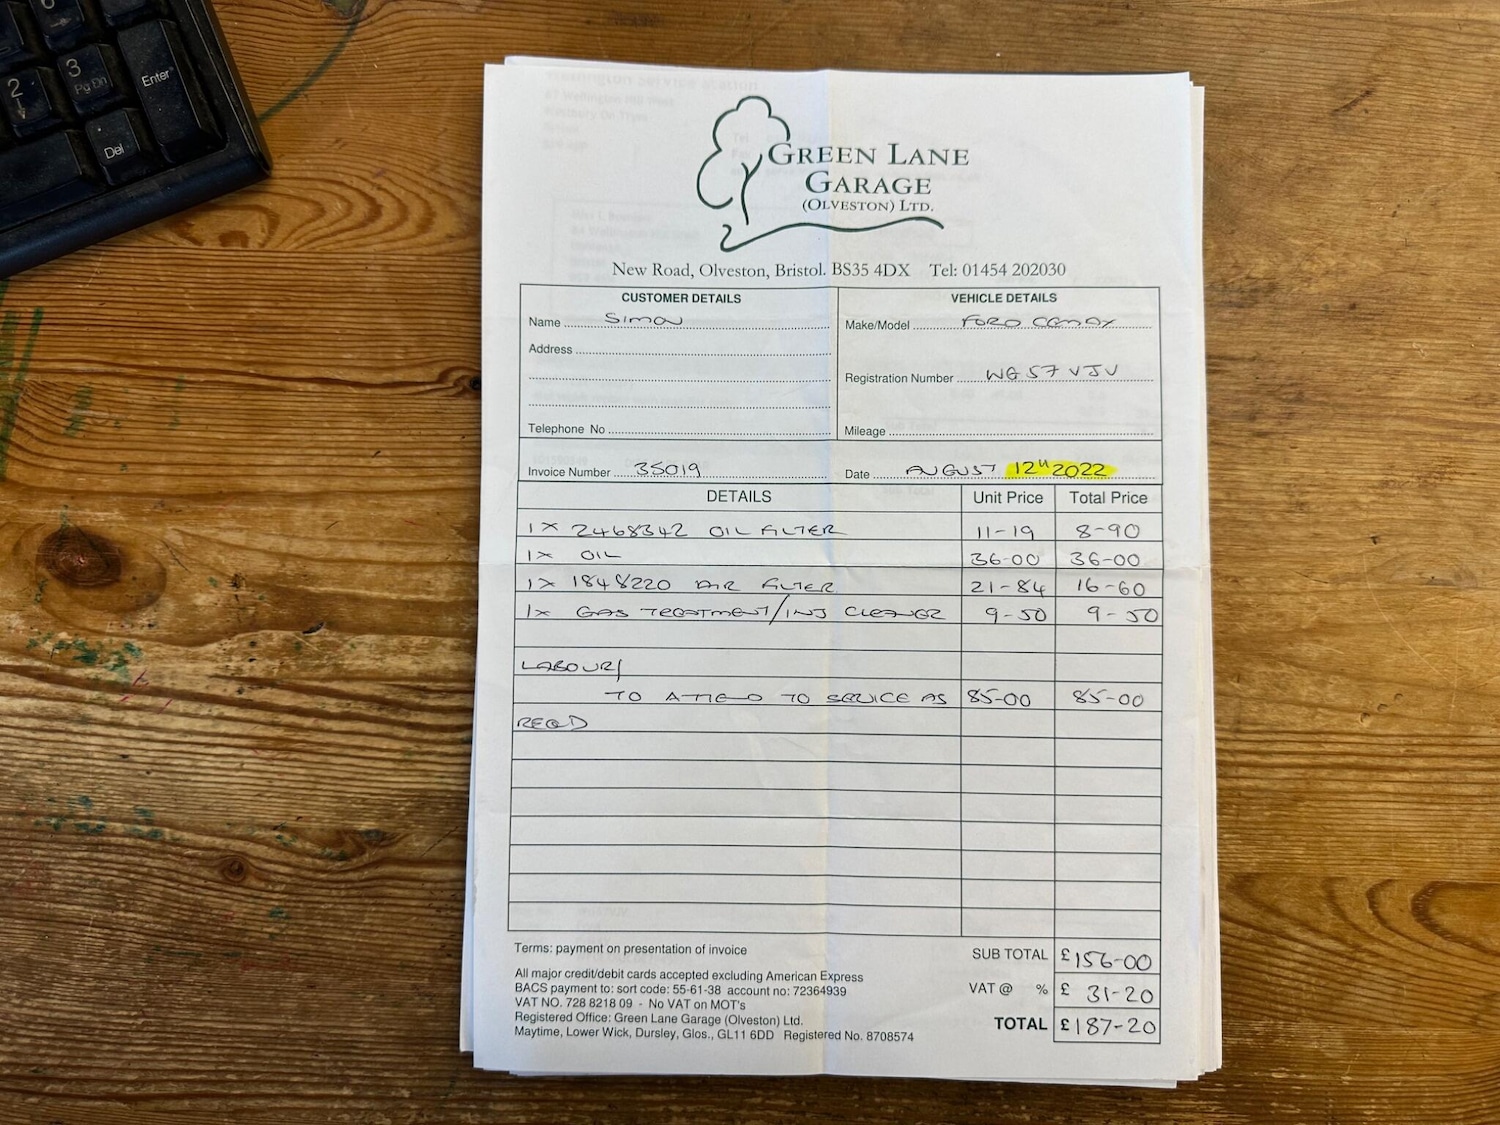 2
3
Pg Dn
Enter
Del
GREEN LANE
GARAGE
(OLVESTON) LTD.
New Road, Olveston, Bristol. BS35 4DX Tel: 01454 202030
CUSTOMER DETAILS
Name SIMON
Address
Telephone No
VEHICLE DETAILS
Make/Model FORD
Registration Number WG57 VJV
Mileage
Invoice Number 35019
Date AUGUST 12TH 2022
DETAILS Unit Price Total Price
1x 2468342 OIL FILTER 11-19 8-90
1x OIL 36-00 36-00
1x 1848220 AIR FILTER 21-84 16-60
1x GAS TREATMENT/INJ CLEANER 9-50 9-50
LABOUR/
TO ATTEND TO SERVICE AS 85-00 85-00
REQD
Terms: payment on presentation of invoice
All major credit/debit cards accepted excluding American Express
BACS payment to: sort code: 55-61-38 account no: 72364939
VAT NO. 728 8218 09 - No VAT on MOT's
Registered Office: Green Lane Garage (Olveston) Ltd.
Maytime, Lower Wick, Dursley, Glos., GL11 6DD Registered No. 8708574
SUB TOTAL £156-00
VAT @ % £ 31-20
TOTAL £187-20